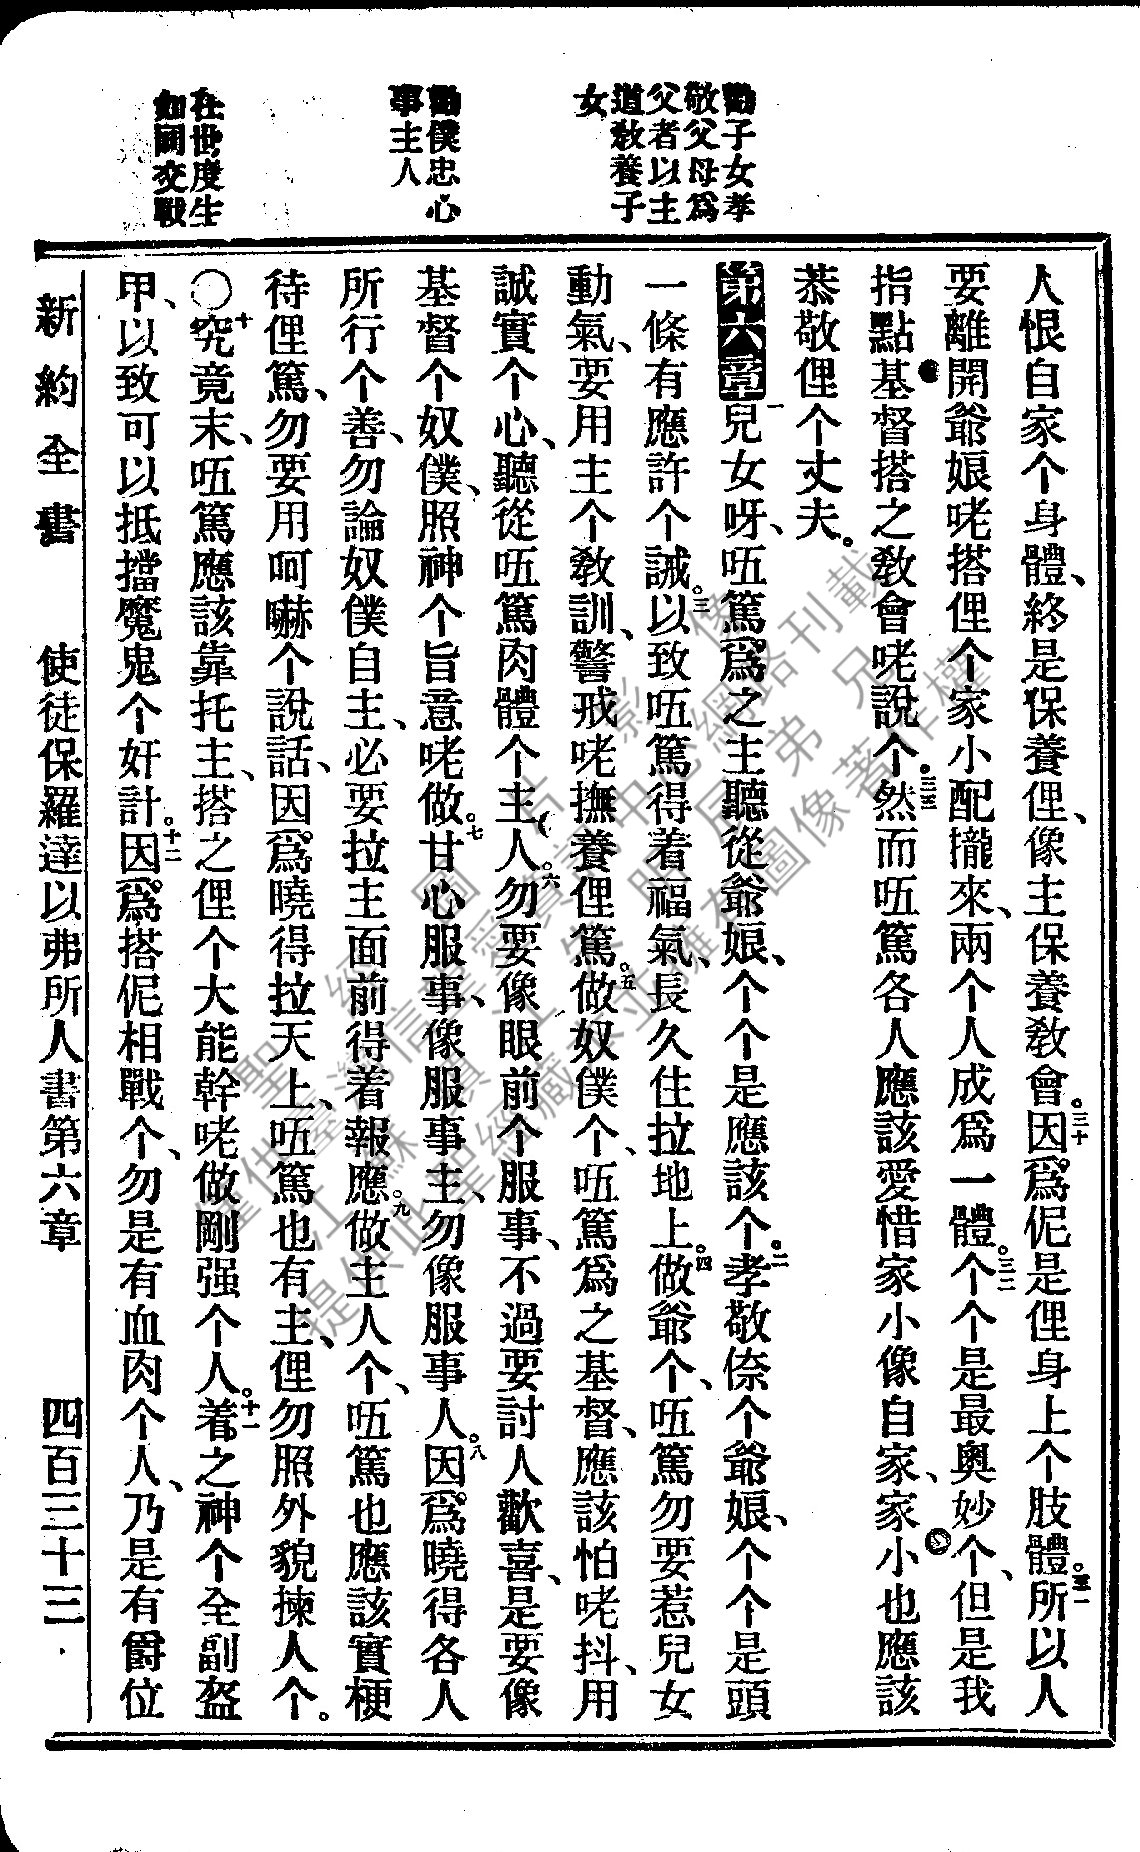 勸子女孝
敬父母爲
父者以主
道敎養子
女
勸僕忠心
事主人
在世度生
如同交戰
人恨自家个身體、終是保養俚、像主保養敎會。三十因爲伲是俚身上个肢體。三一所以人
要離開爺娘咾搭俚个家小配攏來、兩个人成爲一體。三二个个是最奧妙个、但是我
指點基督搭之敎會咾說个。三三然而唔篤各人應該愛惜家小像自家、家小也應該
恭敬俚个丈夫。
第六章一兒女呀、唔篤爲之主聽從爺娘、个个是應該个。二孝敬倷个爺娘、个个是頭
一條有應許个誡。三以致唔篤得着福氣、長久住拉地上。四做爺个、唔篤勿要惹兒女
動氣、要用主个敎訓、警戒咾撫養俚篤。五做奴僕个、唔篤爲之基督、應該怕咾抖、用
誠實个心、聽從唔篤肉體个主人。六勿要像眼前个服事、不過要討人歡喜、是要像
基督个奴僕、照神个旨意咾做。七甘心服事、像服事主、勿像服事人。八因爲曉得各人
所行个善、勿論奴僕自主、必要拉主面前得着報應。九做主人个、唔篤也應該實梗
待俚篤、勿要用呵嚇个說話、因爲曉得拉天上、唔篤也有主、俚勿照外貌揀人个。
〇十究竟末、唔篤應該靠托主、搭之俚个大能幹咾做剛强个人。十一着之神个全副盔
甲、以致可以抵擋魔鬼个奸計。十二因爲搭伲相戰个、勿是有血肉个人、乃是有爵位
新約全書 使徒保羅達以弗所人書第六章 四百三十三
聖經圖書影像
僅供臺灣信望愛資訊中心網路刊載
江蘇鎮江朱服辰弟兄
提供此聖經藏本並擁有圖像著作權